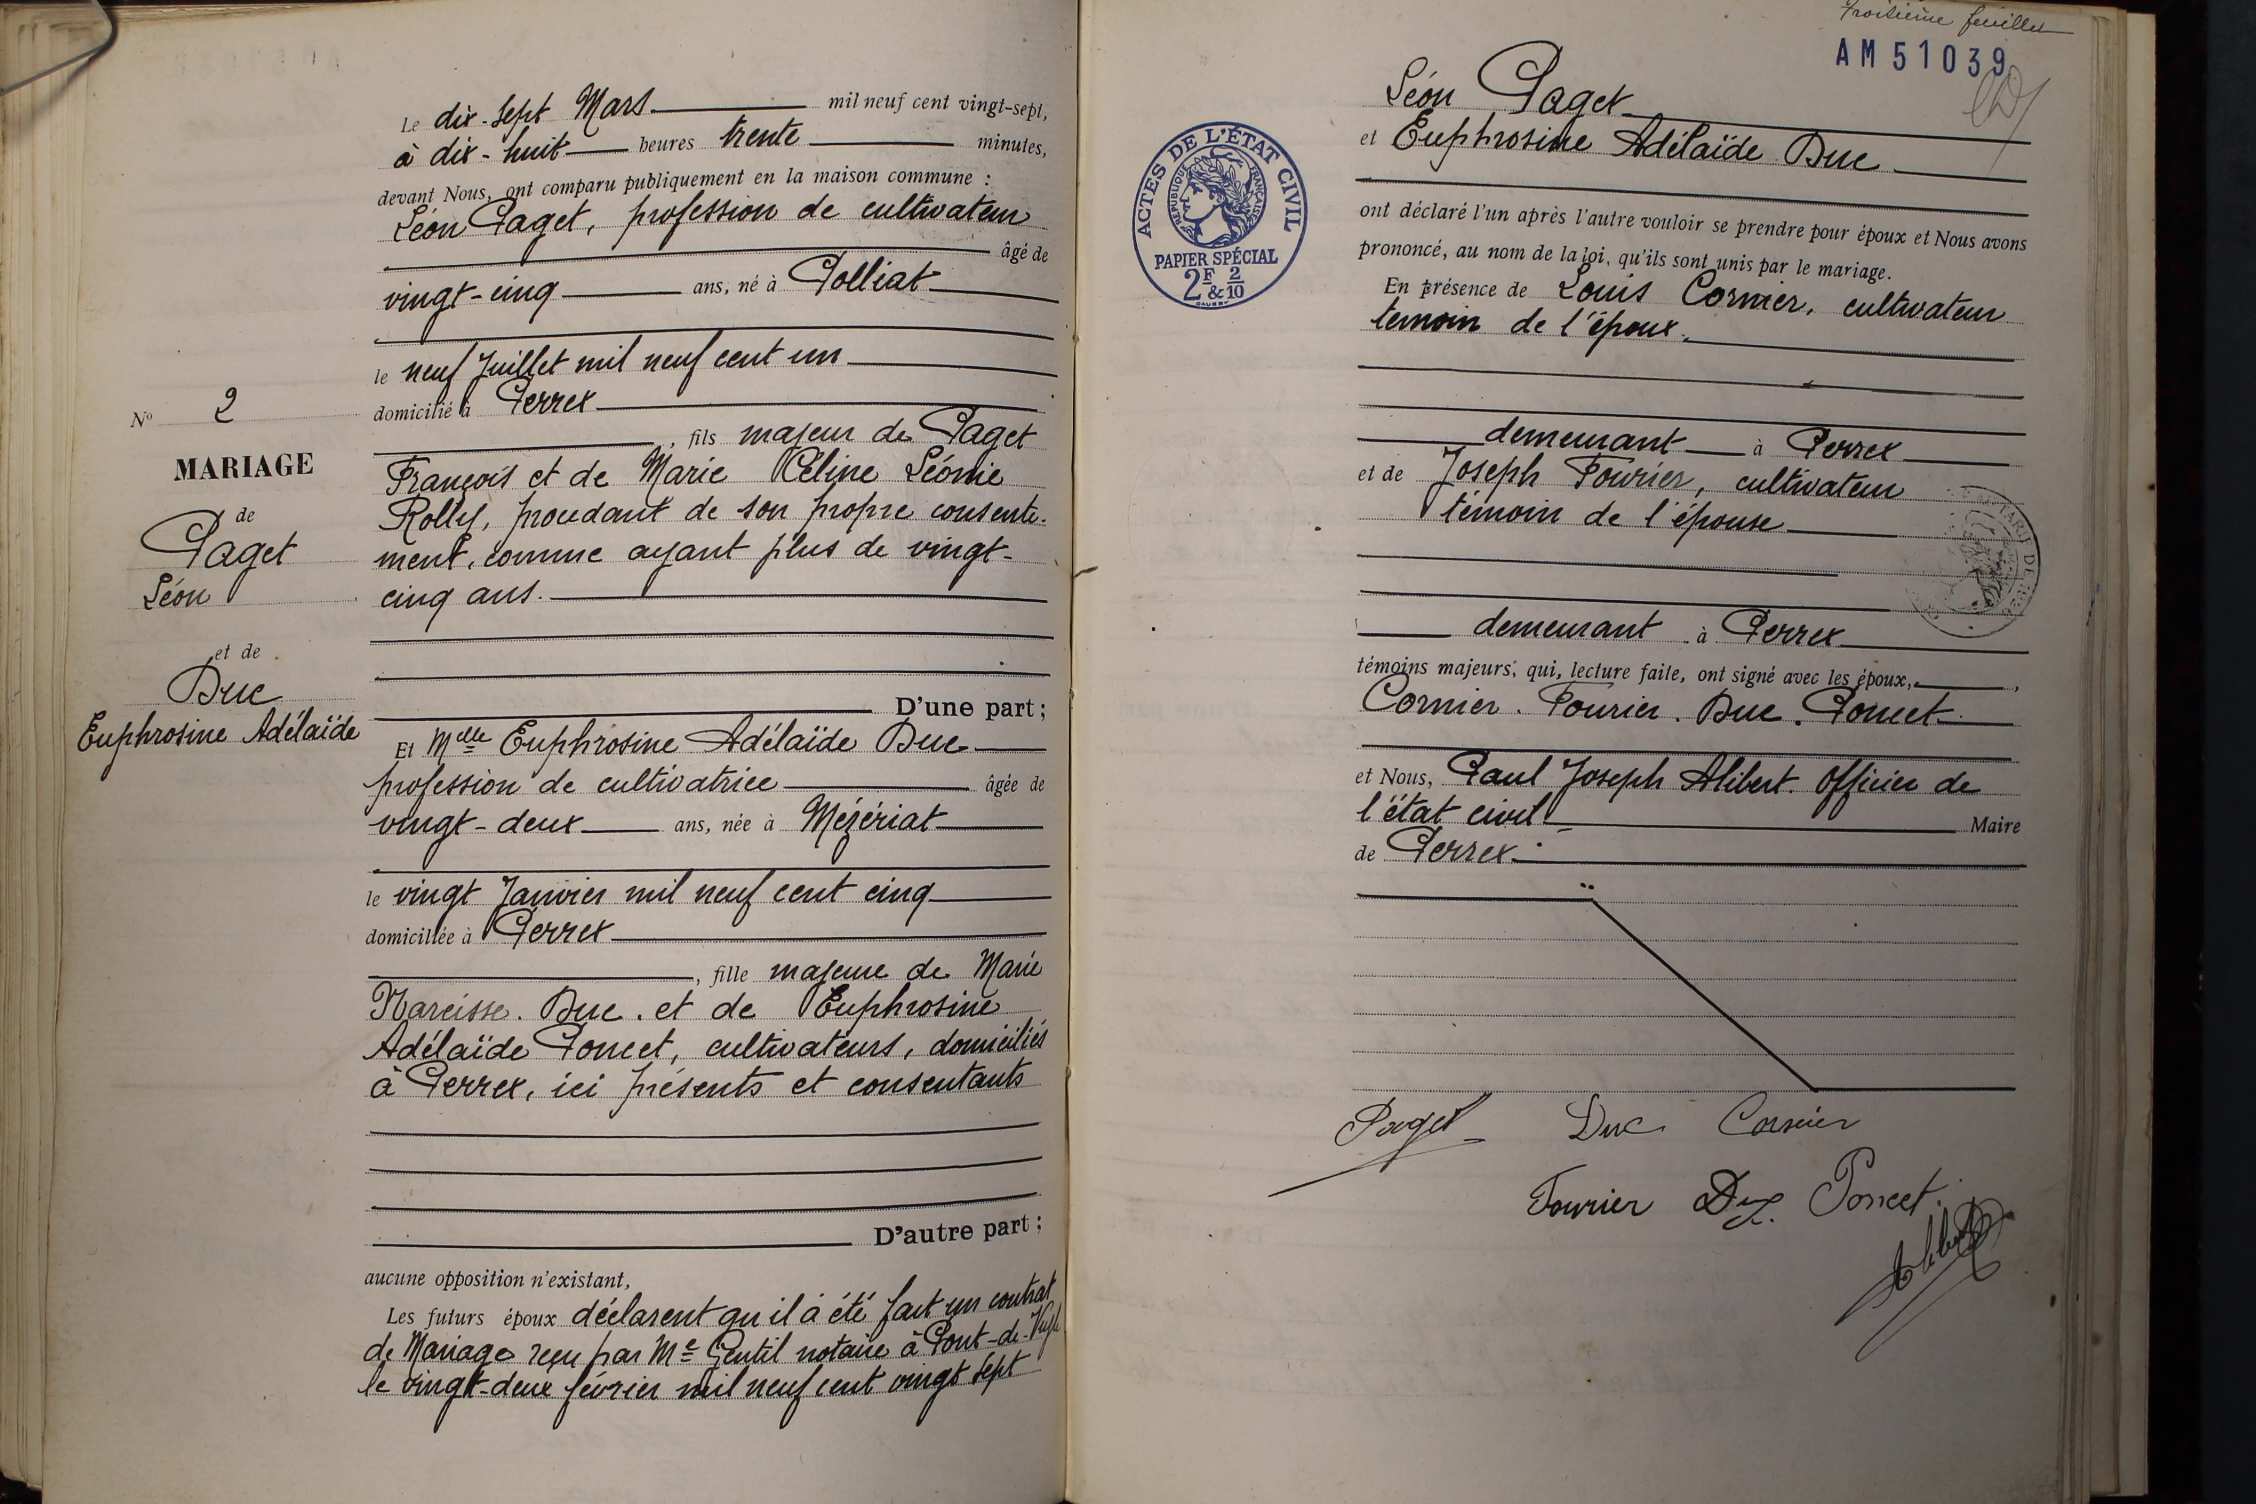 Le dix-sept Mars mil neuf cent vingt-sept,
à dix-huit heures trente minutes,
devant Nous, ont comparu publiquement en la maison commune :
Léon Paget, profession de cultivateur
âgé de
vingt-cinq ans, né à Polliat
le neuf Juillet mil neuf cent un
domicilié à Perrex
, fils majeur de Paget
François et de Marie Céline Léonie
Rolly, procédant de son propre consente-
ment, comme ayant plus de vingt-
cinq ans.
D'une part ;
Et Melle Euphrosine Adélaïde Duc
profession de cultivatrice âgée de
vingt-deux ans, née à Mézériat
le vingt Janvier mil neuf cent cinq
domiciliée à Perrex
, fille majeure de Marie
Narcisse. Duc. et de Euphrosine
Adélaïde Poncet, cultivateurs, domiciliés
à Perrex, ici présents et consentants
D'autre part ;
aucune opposition n'existant,
Les futurs époux déclarent qu'il à été fait un contrat
de Mariage reçu par Me Gentil notaire à Pont-de-Veyle
le vingt-deux février mil neuf cent vingt sept
No 2
MARIAGE
de
Paget
Léon
et de
Duc
Euphrosine Adélaïde
Troisième feuillet
AM 51039
ACTES DE L'ÉTAT CIVIL
RÉPUBLIQUE FRANÇAISE
PAPIER SPÉCIAL
2F & 2/10
Léon Paget
et Euphrosine Adélaïde Duc
ont déclaré l'un après l'autre vouloir se prendre pour époux et Nous avons
prononcé, au nom de la loi, qu'ils sont unis par le mariage.
En présence de Louis Cornier, cultivateur
témoin de l'époux.
demeurant à Perrex
et de Joseph Fourier, cultivateur
témoin de l'épouse
demeurant à Perrex
témoins majeurs, qui, lecture faite, ont signé avec les époux,
Cornier. Fourier. Duc. Poncet
et Nous, Paul Joseph Alibert. Officier de
l'état civil Maire
de Perrex.
Paget Duc Cornier
Fourier Duc Poncet
Alibert